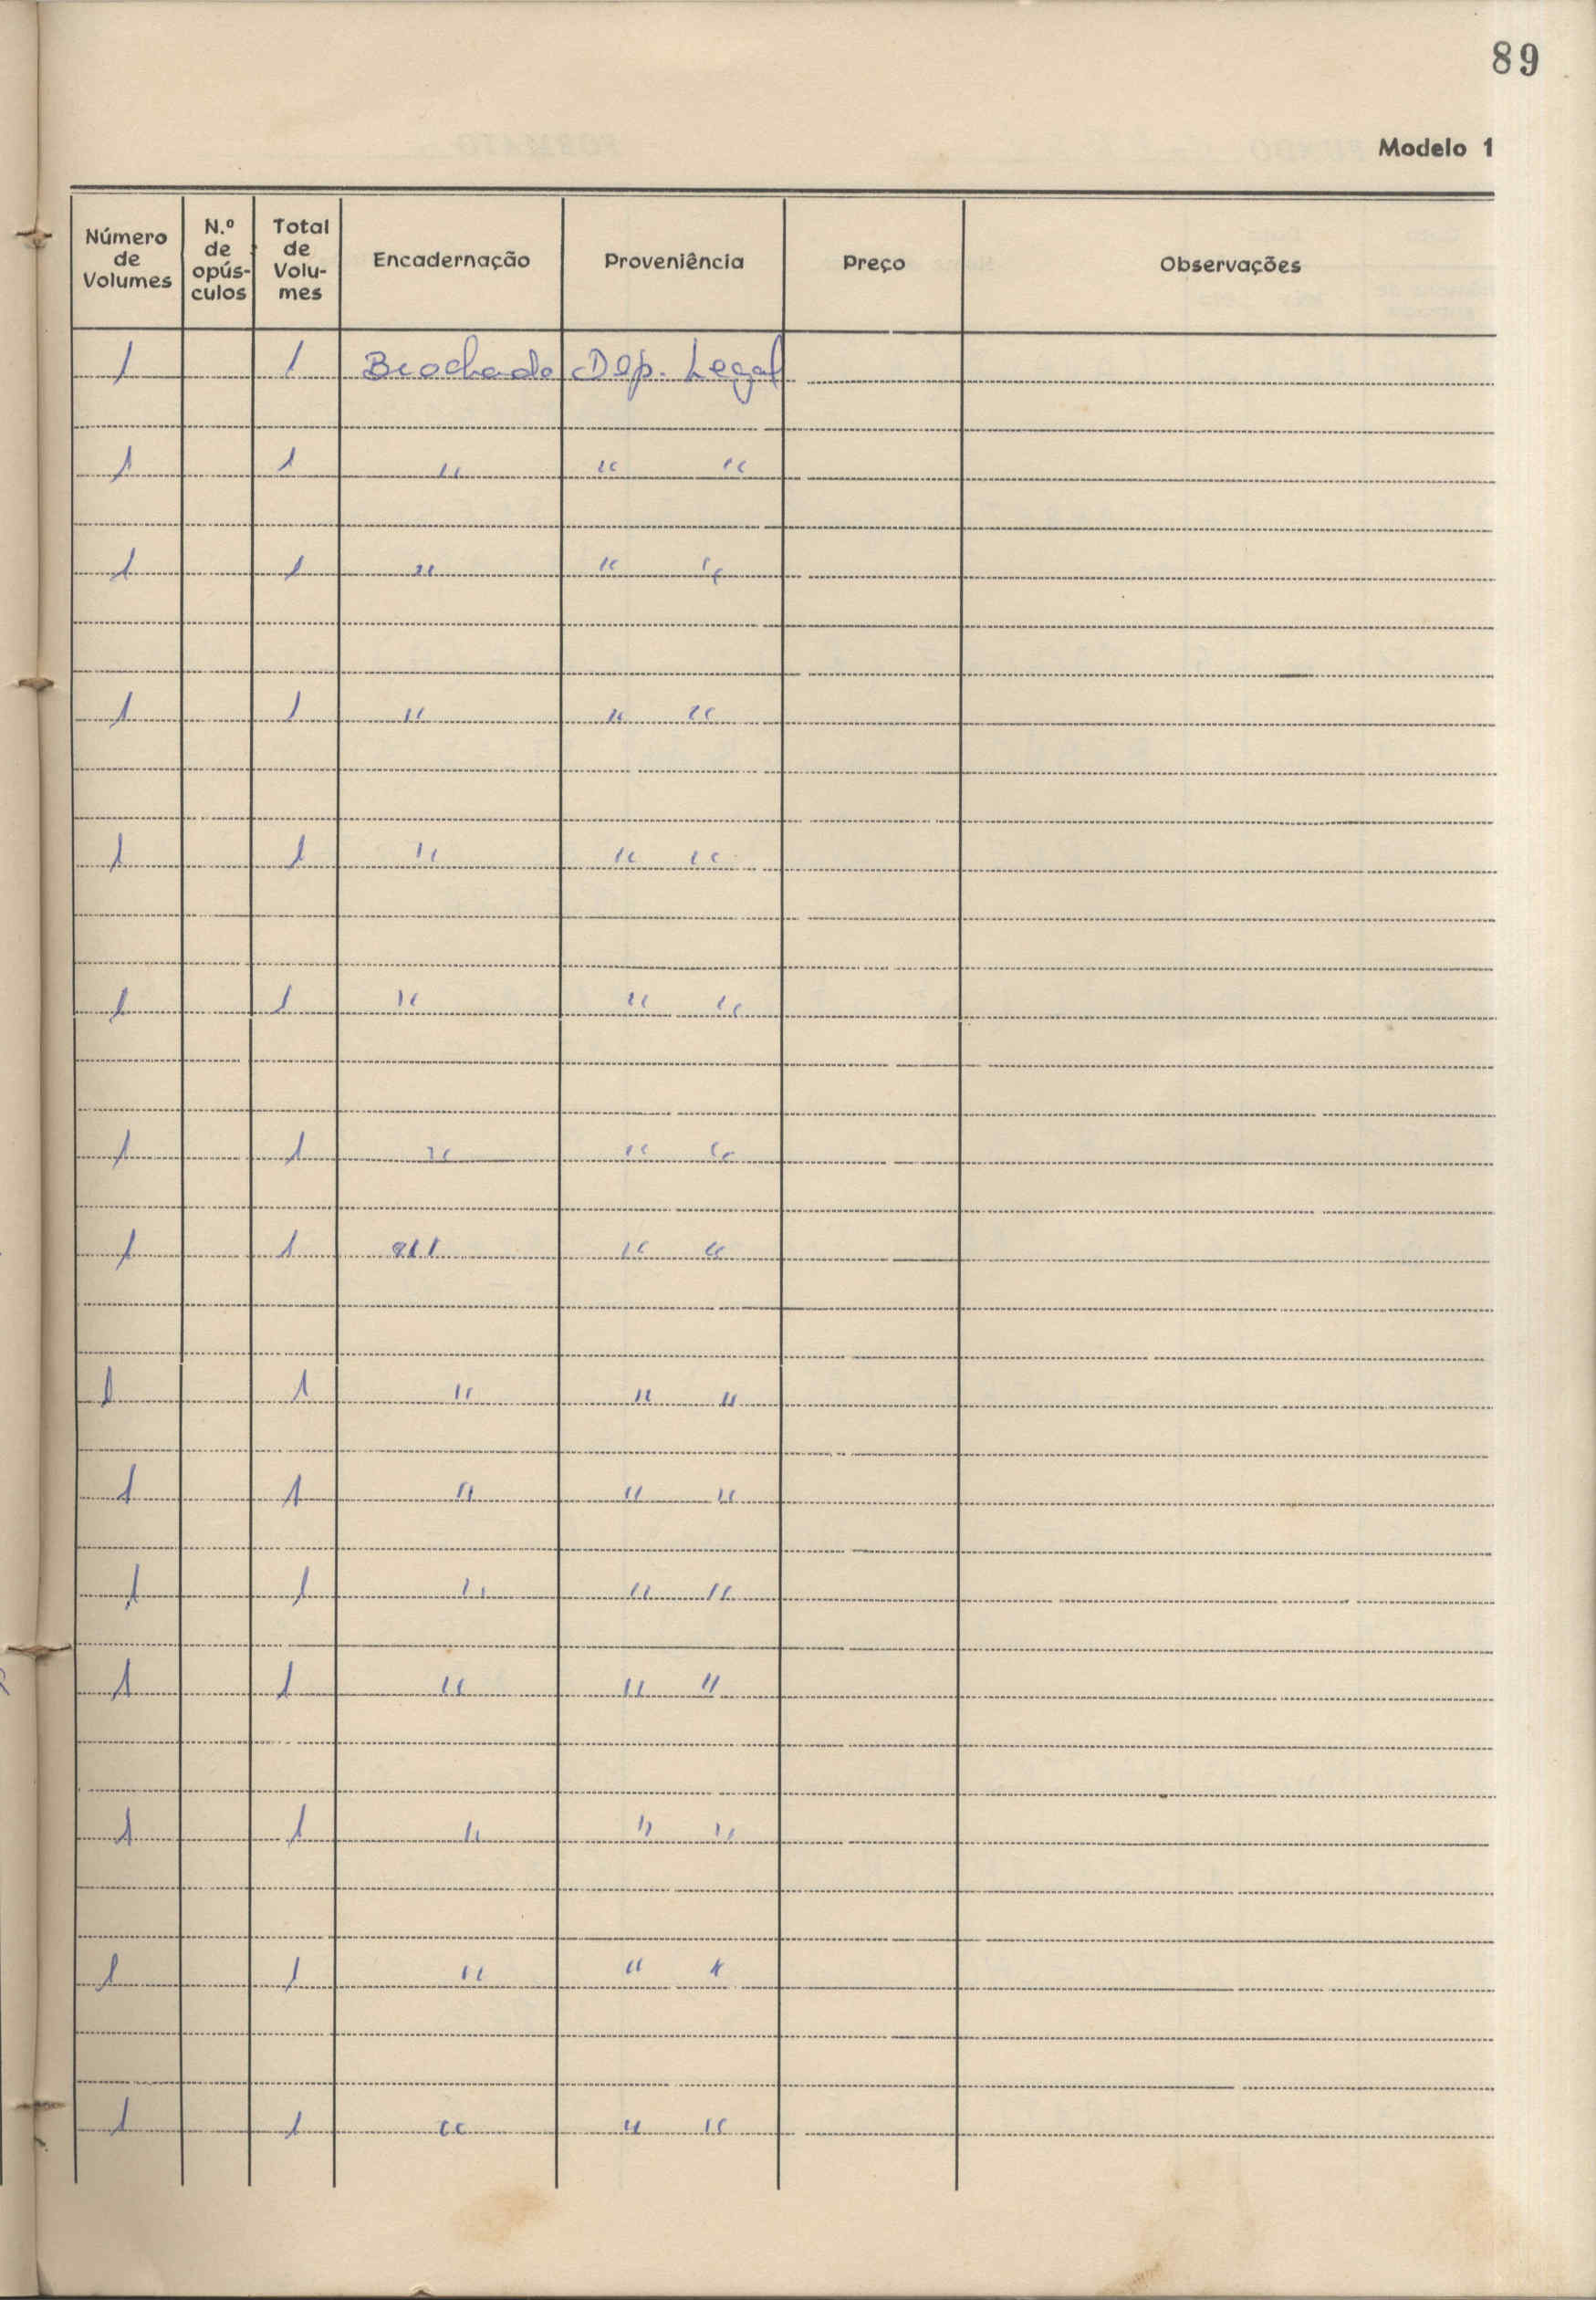 89
Modelo 1
Número de Volumes | N.º de opús-culos | Total de Volu-mes | Encadernação | Proveniência | Preço | Observações
1 | | 1 | Brochado | Dep. Legal
1 | | 1 | " | " "
1 | | 1 | " | " "
1 | | 1 | " | " "
1 | | 1 | " | " "
1 | | 1 | " | " "
1 | | 1 | " | " "
1 | | 1 | " | " "
1 | | 1 | " | " "
1 | | 1 | " | " "
1 | | 1 | " | " "
1 | | 1 | " | " "
1 | | 1 | " | " "
1 | | 1 | " | " "
1 | | 1 | " | " "